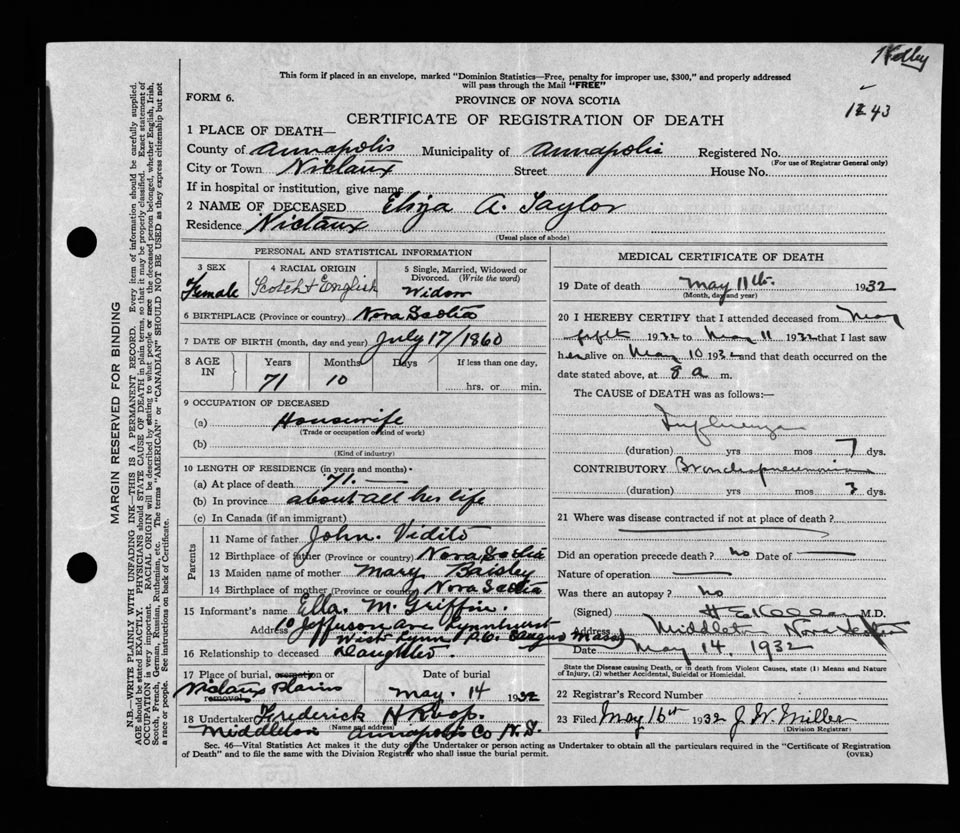 Kelley
This form if placed in an envelope, marked "Dominion Statistics—Free, penalty for improper use, $300," and properly addressed
will pass through the Mail "FREE"
FORM 6.
PROVINCE OF NOVA SCOTIA
1243
CERTIFICATE OF REGISTRATION OF DEATH
1 PLACE OF DEATH—
County of Annapolis Municipality of Annapolis Registered No.
(For use of Registrar General only)
City or Town Nictaux Street House No.
If in hospital or institution, give name
2 NAME OF DECEASED Eliza A. Taylor
Residence Nictaux
(Usual place of abode)
PERSONAL AND STATISTICAL INFORMATION
3 SEX 4 RACIAL ORIGIN 5 Single, Married, Widowed or
Divorced. (Write the word)
Female Scotch & English Widow
6 BIRTHPLACE (Province or country) Nova Scotia
7 DATE OF BIRTH (month, day and year) July 17/1860
8 AGE IN Years Months Days If less than one day,
71 10 hrs. or min.
9 OCCUPATION OF DECEASED
(a) Housewife
(Trade or occupation or kind of work)
(b)
(Kind of industry)
10 LENGTH OF RESIDENCE (in years and months)
(a) At place of death 71.
(b) In province about all her life
(c) In Canada (if an immigrant)
Parents
11 Name of father John Vidito
12 Birthplace of father (Province or country) Nova Scotia
13 Maiden name of mother Mary Baisley
14 Birthplace of mother (Province or country) Nova Scotia
15 Informant's name Ella. M. Griffin.
Address 10 Jefferson Ave Lynnhurst
West Lynn P.O. Saugus Mass
16 Relationship to deceased Daughter.
17 Place of burial, cremation or removal Date of burial
Nictaux Plains May. 14 1932
18 Undertaker Frederick H
(Name and address)
Middleton Annapolis Co N.S.
MEDICAL CERTIFICATE OF DEATH
19 Date of death May 11th. 1932
(Month, day and year)
20 I HEREBY CERTIFY that I attended deceased from May
fifth 1932 to May 11 1932 that I last saw
her alive on May 10 1932 and that death occurred on the
date stated above, at 8 a m.
The CAUSE of DEATH was as follows:—
Influenza
(duration) yrs mos 7 dys.
CONTRIBUTORY Bronchopneumonia
(duration) yrs mos 3 dys.
21 Where was disease contracted if not at place of death?
Did an operation precede death? no Date of
Nature of operation
Was there an autopsy? no
(Signed) M.D.
Address Middleton Nova Scotia
Date May 14, 1932
State the Disease causing Death, or in death from Violent Causes, state (1) Means and Nature
of Injury, (2) whether Accidental, Suicidal or Homicidal.
22 Registrar's Record Number
23 Filed May 16th 1932 J W Miller
(Division Registrar)
Sec. 46—Vital Statistics Act makes it the duty of the Undertaker or person acting as Undertaker to obtain all the particulars required in the "Certificate of Registration
of Death" and to file the same with the Division Registrar who shall issue the burial permit.
(OVER)
MARGIN RESERVED FOR BINDING
N.B.—WRITE PLAINLY WITH UNFADING INK—THIS IS A PERMANENT RECORD. Every item of information should be carefully supplied.
AGE should be stated EXACTLY. PHYSICIANS should STATE CAUSE OF DEATH in plain terms, so that it may be properly classified. Exact statement of
OCCUPATION is very important. RACIAL ORIGIN will be described by stating to what people or race the deceased person belonged, whether English, Irish,
Scotch, French, German, Russian, Ruthenian, etc. The terms "AMERICAN" or "CANADIAN" SHOULD NOT BE USED as they express citizenship but not
a race or people. See instructions on back of Certificate.